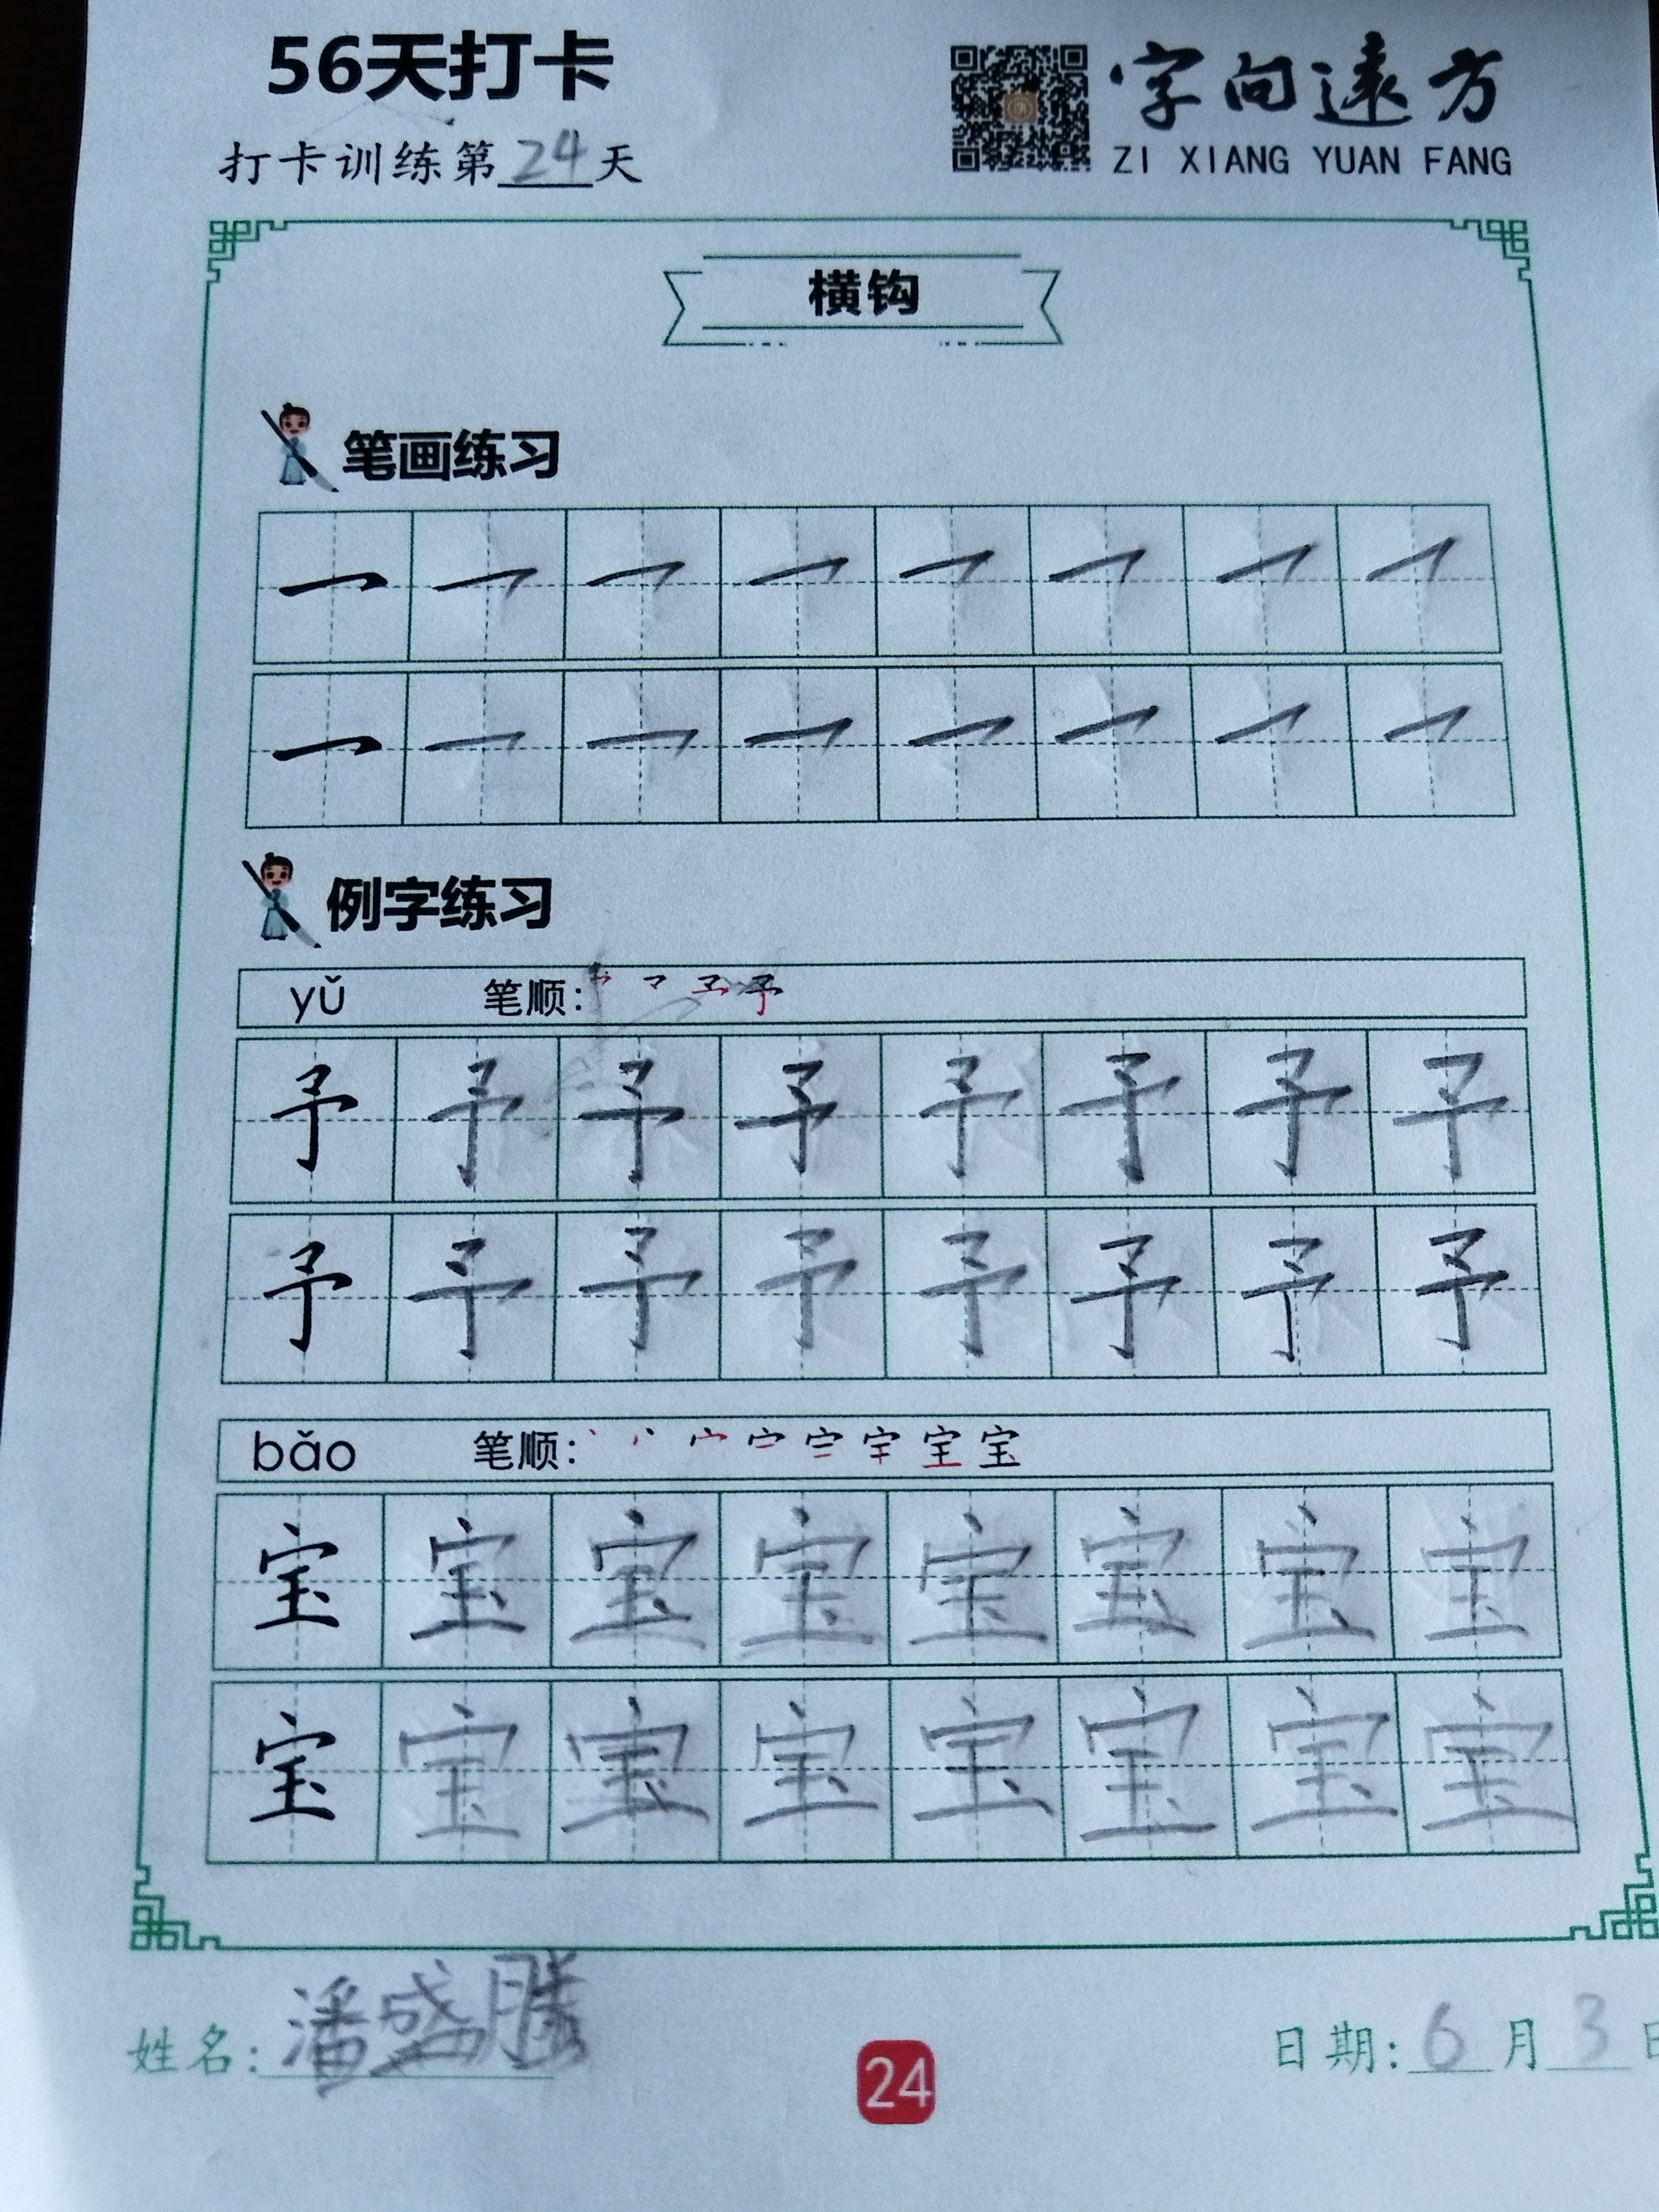 56天打卡
字向远方
打卡训练第24天
ZI XIANG YUAN FANG
横钩
笔画练习
例字练习
yǔ 笔顺:
予 予 予 予 予 予 予 予
予 予 予 予 予 予 予 予
bǎo 笔顺:
宝 宝 宝 宝 宝 宝 宝 宝
宝 宝 宝 宝 宝 宝 宝 宝
姓名:潘盛腾
日期:6月3日
24